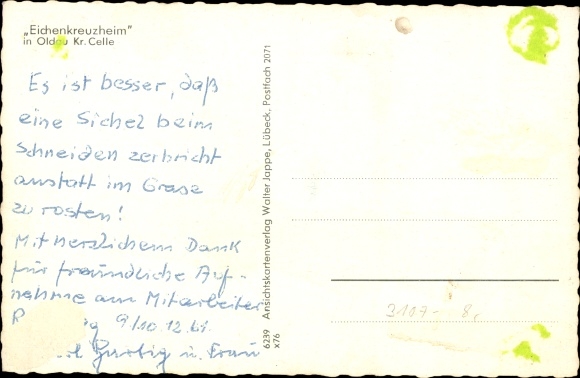 „Eichenkreuzheim"
in Oldau Kr. Celle
Es ist besser, daß
eine Sichel beim
Schneiden zerbricht
anstatt im Grase
zu rosten!
Mit herzlichem Dank
für freundliche Auf-
nahme am Mitarbeiter
9/10.12.61.
u. Frau
Ansichtskartenverlag Walter Jappe, Lübeck, Postfach 2071
6239
x76
3107- 8,